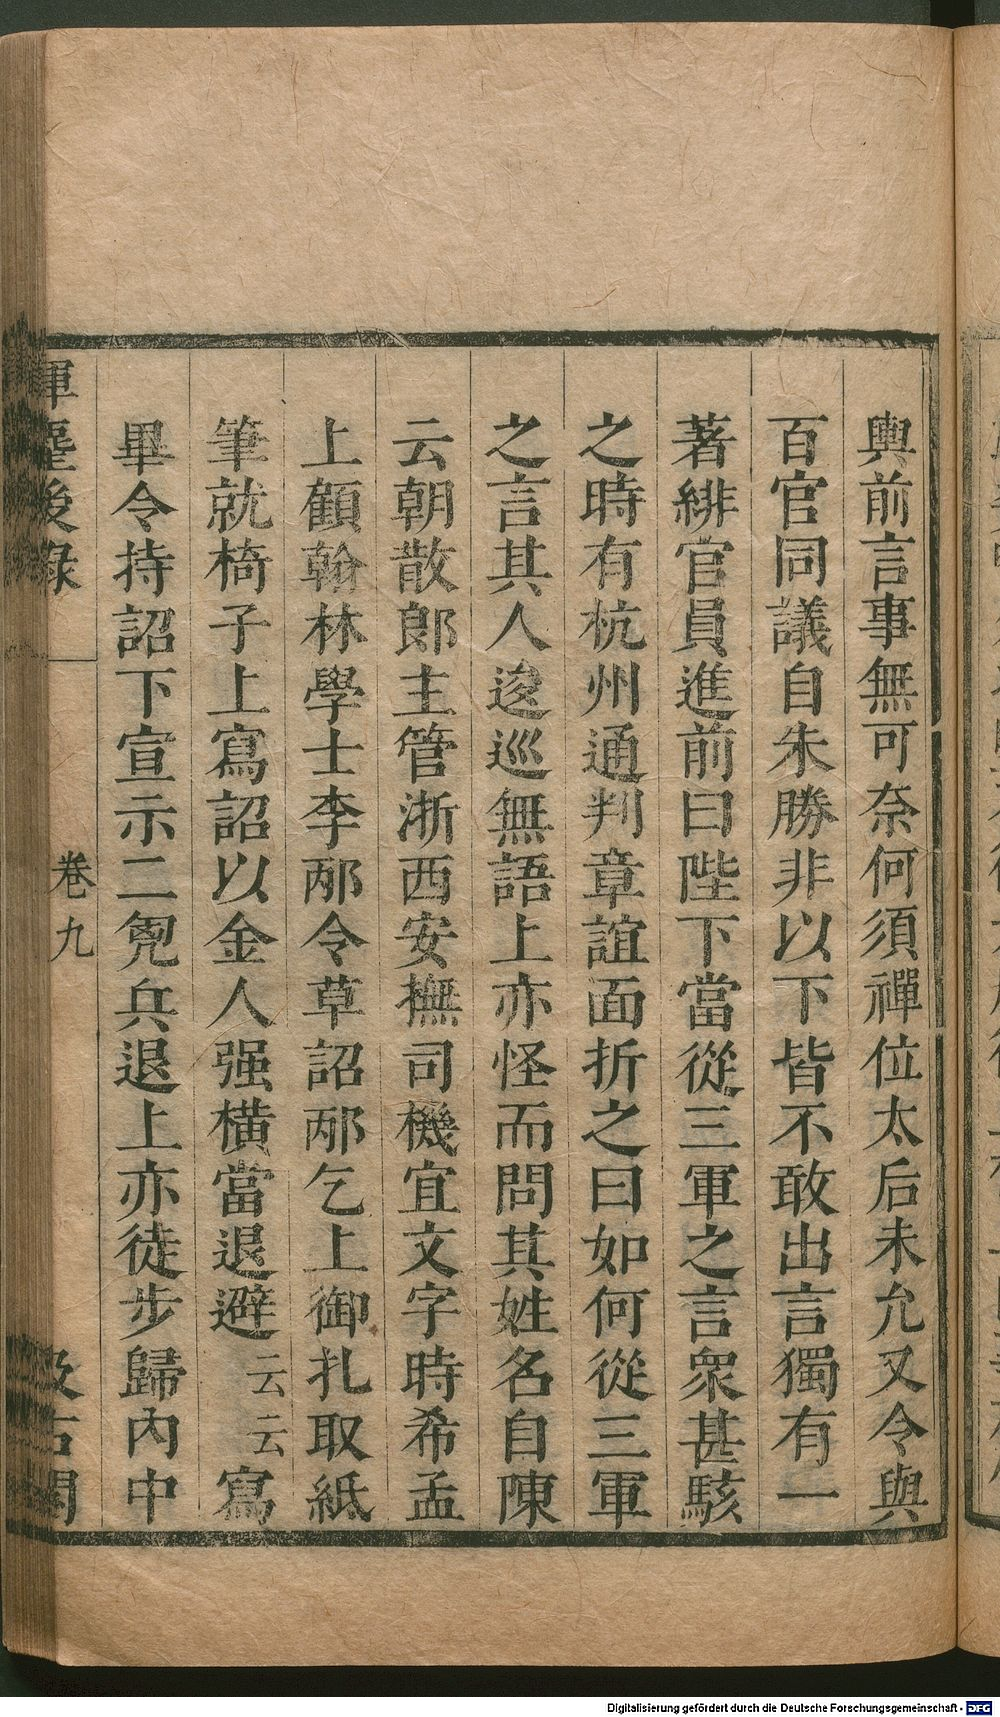 輿前言事無可奈何須禪位太后未允又令與
百官同議自朱勝非以下皆不敢出言獨有一
著緋官員進前曰陛下當從三軍之言衆甚駭
之時有杭州通判章誼面折之曰如何從三軍
之言其人逡巡無語上亦怪而問其姓名自陳
云朝散郎主管浙西安撫司機宜文字時希孟
上顧翰林學士李邴令草詔邴乞上御札取紙
筆就椅子上寫詔以金人强橫當退避云云寫
畢令持詔下宣示二兇兵退上亦徒步歸內中
揮麈後錄
卷九
汲古閣
Digitalisierung gefördert durch die Deutsche Forschungsgemeinschaft - DFG